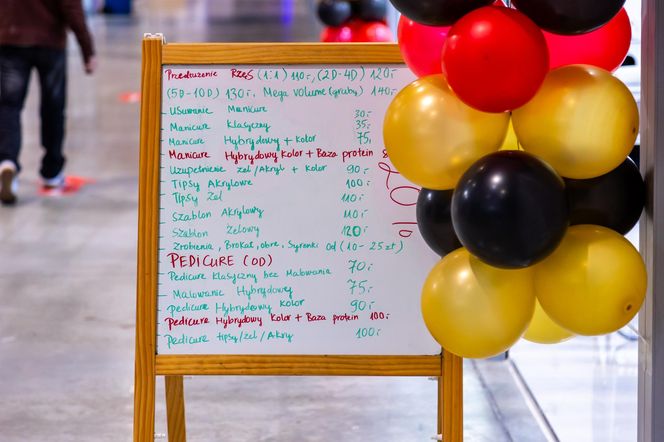 Przedłużenie RZĘS (1:1) 110,-, (2D-4D) 120,-
(5D-10D) 130,-. Mega volume (gruby) 140,-
Usuwanie Manicure 30,-
Manicure Klasyczny 35,-
Manicure Hybrydowy + kolor 75,-
Manicure Hybrydowy Kolor + Baza protein
Uzupełnienie żel/Akryl + kolor 90,-
Tipsy Akrylowe 100,-
Tipsy Żel 110,-
Szablon Akrylowy 110,-
Szablon Żelowy 120,-
Zdobienia, Brokat, obre, Syrenki od (10-25zł)
PEDICURE (OD)
Pedicure Klasyczny bez Malowania 70,-
Malowanie Hybrydowy 75,-
Pedicure Hybrydowy Kolor 90,-
Pedicure Hybrydowy Kolor + Baza protein 100,-
Pedicure tipsy/żel/Akryl 100,-